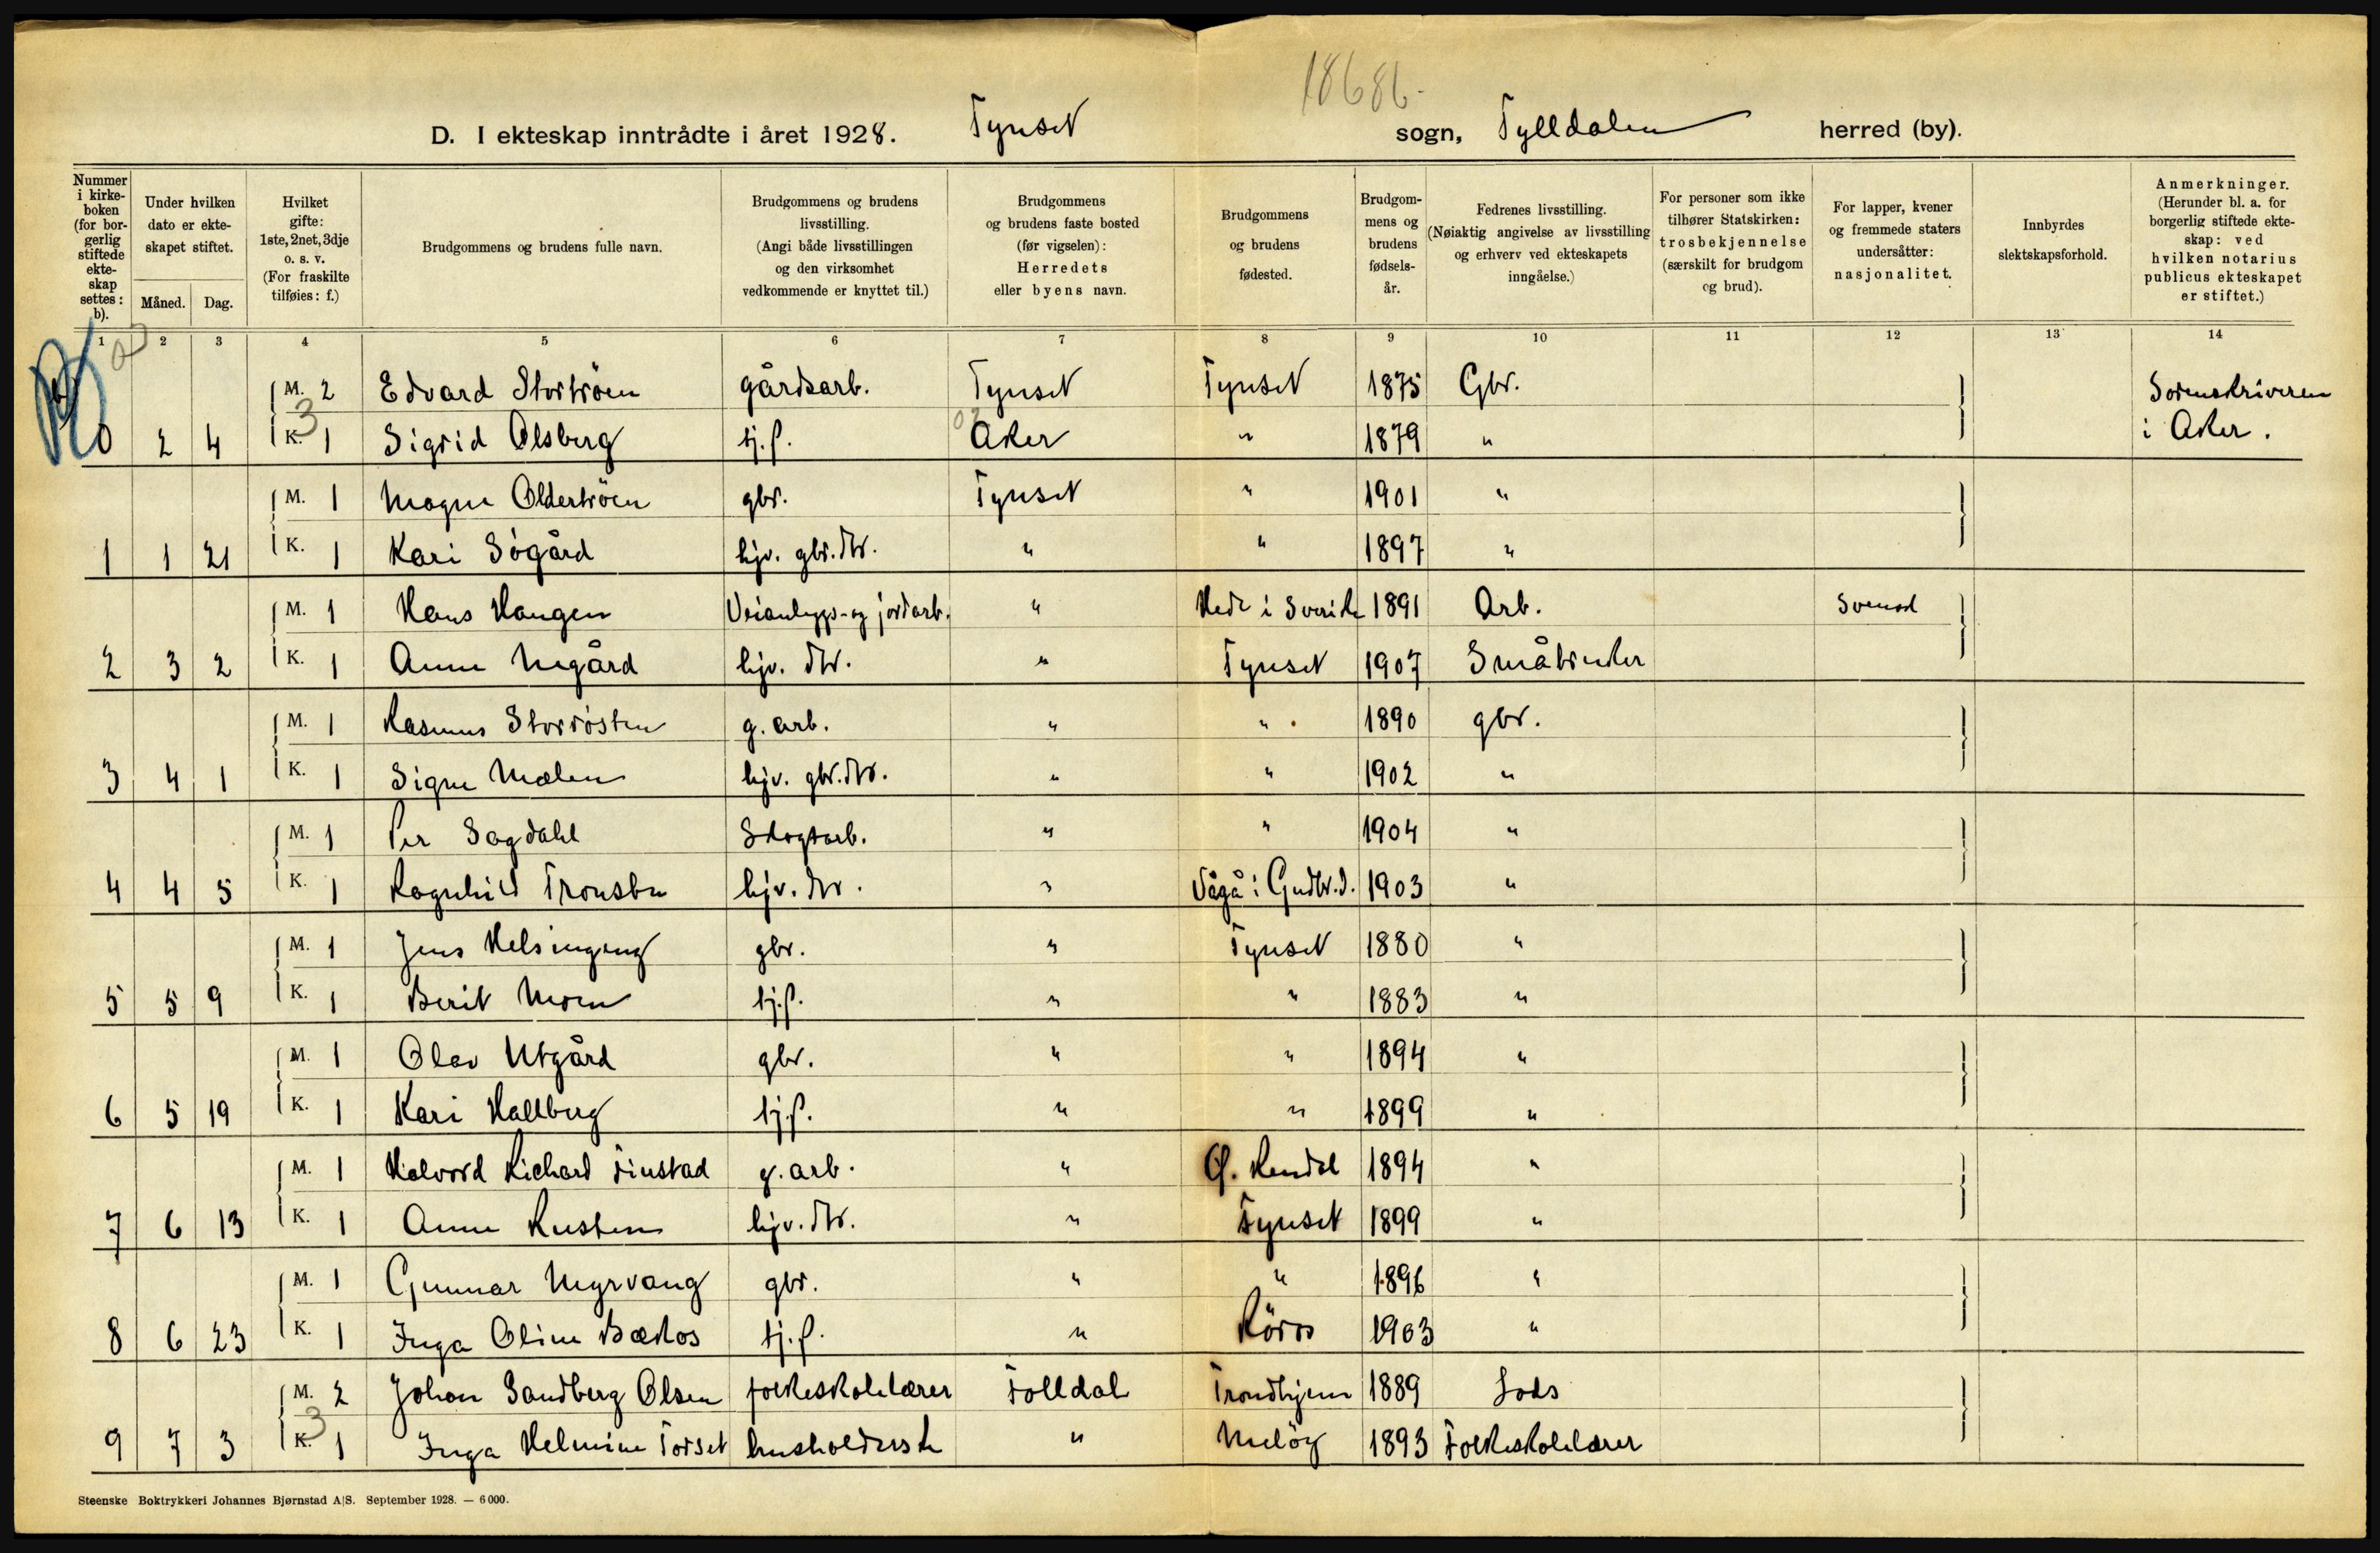 18686.
D. I ekteskap inntrådte i året 1928. Tynset sogn, Tylldalen herred (by).
Nummer i kirkeboken (for borgerlig stiftede ekteskap settes: b).
Under hvilken dato er ekteskapet stiftet.
Måned. Dag.
Hvilket gifte: 1ste, 2net, 3dje o. s. v. (For fraskilte tilføies: f.)
Brudgommens og brudens fulle navn.
Brudgommens og brudens livsstilling. (Angi både livsstillingen og den virksomhet vedkommende er knyttet til.)
Brudgommens og brudens faste bosted (før vigselen): Herredets eller byens navn.
Brudgommens og brudens fødested.
Brudgommens og brudens fødselsår.
Fedrenes livsstilling. (Nøiaktig angivelse av livsstilling og erhverv ved ekteskapets inngåelse.)
For personer som ikke tilhører Statskirken: trosbekjennelse (særskilt for brudgom og brud).
For lapper, kvener og fremmede staters undersåtter: nasjonalitet.
Innbyrdes slektskapsforhold.
Anmerkninger. (Herunder bl. a. for borgerlig stiftede ekteskap: ved hvilken notarius publicus ekteskapet er stiftet.)
1 2 3 4 5 6 7 8 9 10 11 12 13 14
M. 2 Edvard Stortrøen gårdsarb. Tynset Tynset 1875 Gbr. Sorenskriveren
0 2 4 K. 1 Sigrid Olsberg tj.p. Aker " 1879 " i Aker.
3
M. 1 Magne Oldertrøen gbr. Tynset " 1901 "
1 1 21 K. 1 Kari Sogård hjv. gbr.dtr. " " 1897 "
M. 1 Hans Haugen Veianleggs- og jordarb. " Hede i Sverike 1891 Arb. Svensk
2 3 2 K. 1 Anne Negård hjv. dtr. " Tynset 1907 Småbruker
M. 1 Rasmus Storrøsten g. arb. " " 1890 gbr.
3 4 1 K. 1 Signe Mælen hjv. gbr.dtr. " " 1902 "
M. 1 Per Sagdahl Skogsarb. " " 1904 "
4 4 5 K. 1 Ragnhild Tronsbu hjv. dtr. " Vågå i Gudbr.d. 1903 "
M. 1 Jens Helsingeng gbr. " Tynset 1880 "
5 5 9 K. 1 Berit Moen tj.p. " " 1883 "
M. 1 Olav Utgård gbr. " " 1894 "
6 5 19 K. 1 Kari Hallberg tj.p. " " 1899 "
M. 1 Halvord Richard Finstad g. arb. " Ø. Rendal 1894 "
7 6 13 K. 1 Anne Rusten hjv. dtr. " Tynset 1899 "
M. 1 Gunnar Myrvang gbr. " " 1896 "
8 6 23 K. 1 Inga Oline Bækos tj.p. " Røros 1903 "
M. 2 Johan Sandberg Olsen folkeskolelærer Folldal Trondhjem 1889 Lods
9 7 3 K. 1 Inga Helmine Torset husholderske " Meløy 1893 Folkeskolelærer
3
Steenske Boktrykkeri Johannes Bjørnstad A|S. September 1928. — 6000.